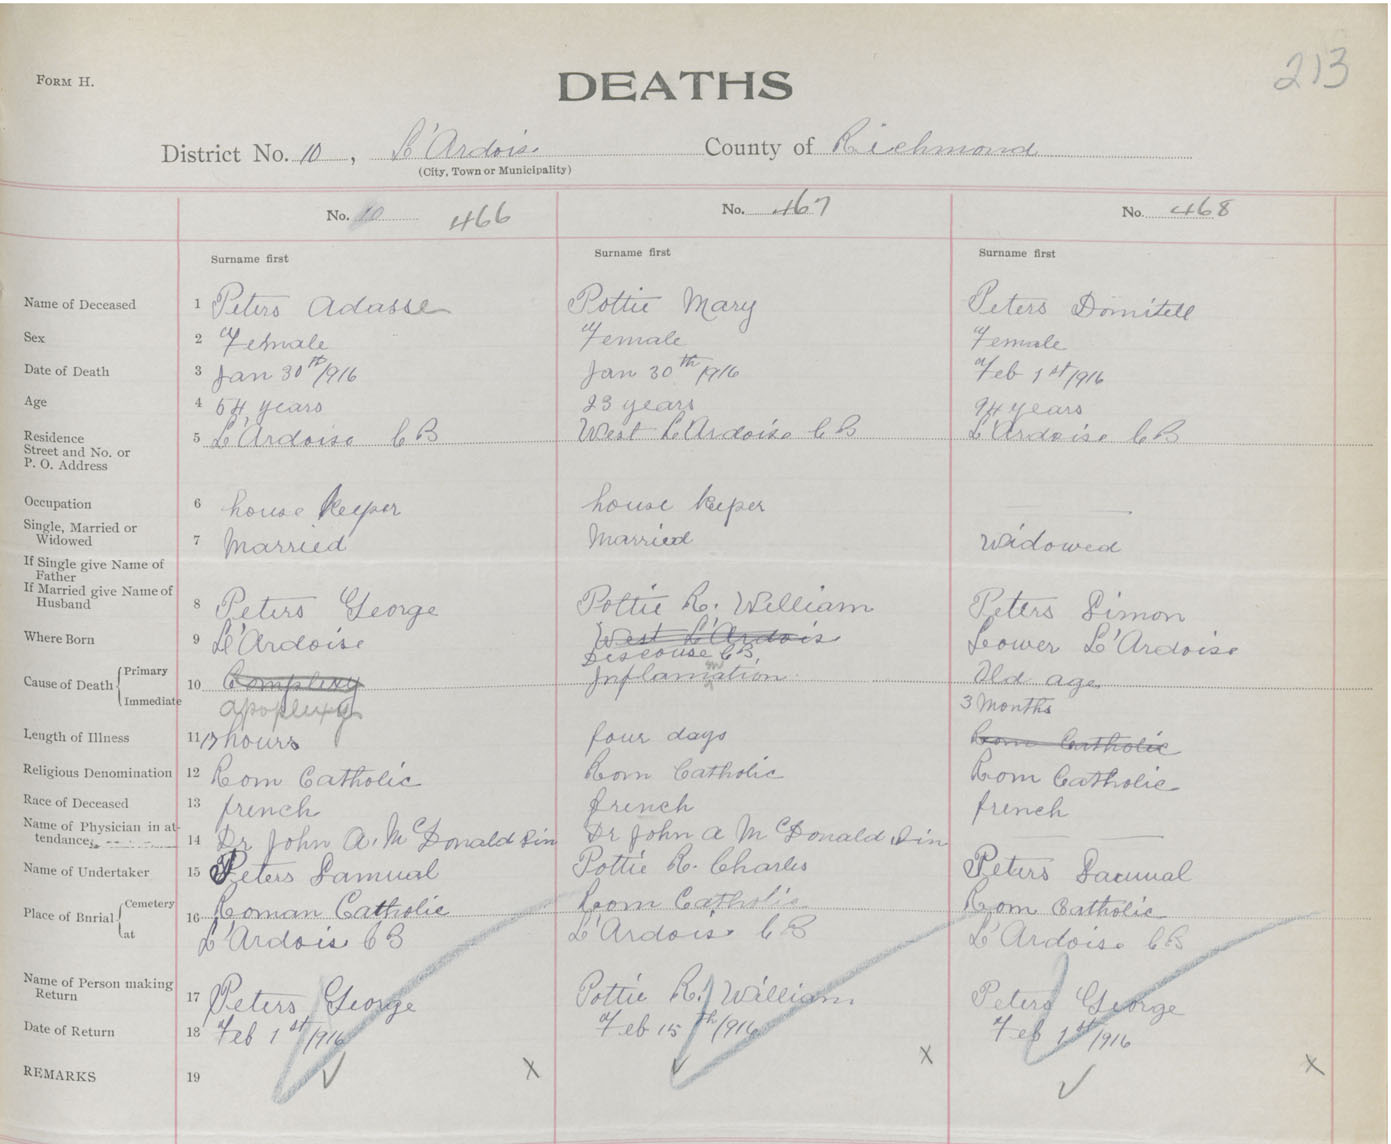 213
FORM H.
DEATHS
District No. 10, L'Ardoise County of Richmond
(City, Town or Municipality)
No. 10 466 No. 467 No. 468
Surname first Surname first Surname first
Name of Deceased 1 Peters Adasse Pottie Mary Peters Domitell
Sex 2 Female Female Female
Date of Death 3 Jan 30th/1916 Jan 30th/1916 Feb 1st/1916
Age 4 54 years 23 years 94 years
Residence 5 L'Ardoise C B West L'Ardoise C B L'Ardoise C B
Street and No. or
P. O. Address
Occupation 6 house keeper house keper
Single, Married or
Widowed 7 Married Married Widowed
If Single give Name of
Father
If Married give Name of
Husband 8 Peters George Pottie R. William Peters Simon
Where Born 9 L'Ardoise West L'Ardois Lower L'Ardoise
Discouse CB
Cause of Death Primary 10 Complexy Inflamation Old age
m
Immediate apoplexy 3 Months
Length of Illness 11 17 hours four days Rom Catholic
Religious Denomination 12 Rom Catholic Rom Catholic Rom Catholic
Race of Deceased 13 french french french
Name of Physician in at-
tendance 14 Dr John A. McDonald Sin Dr John A McDonald Sin
Name of Undertaker 15 Peters Samual Pottie R. Charles Peters Samual
Place of Burial Cemetery 16 Roman Catholic Rom Catholic Rom Catholic
at L'Ardois CB L'Ardois C B L'Ardois CB
Name of Person making
Return 17 Peters George Pottie R. William Peters George
Date of Return 18 Feb 1st/1916 Feb 15th/1916 Feb 1st/1916
REMARKS 19 X X X